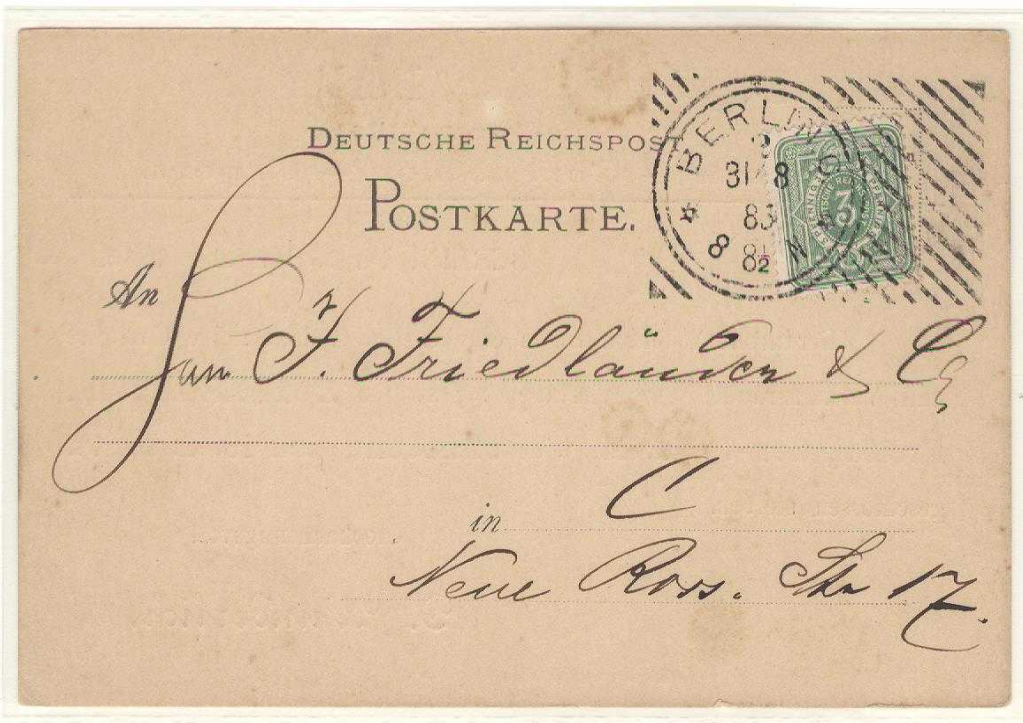 DEUTSCHE REICHSPOST
POSTKARTE.
BERLIN C
2
31 8
83
8 8½ N
3
An
J. Friedländer & Co
in C
Neue Ross. Str 17.